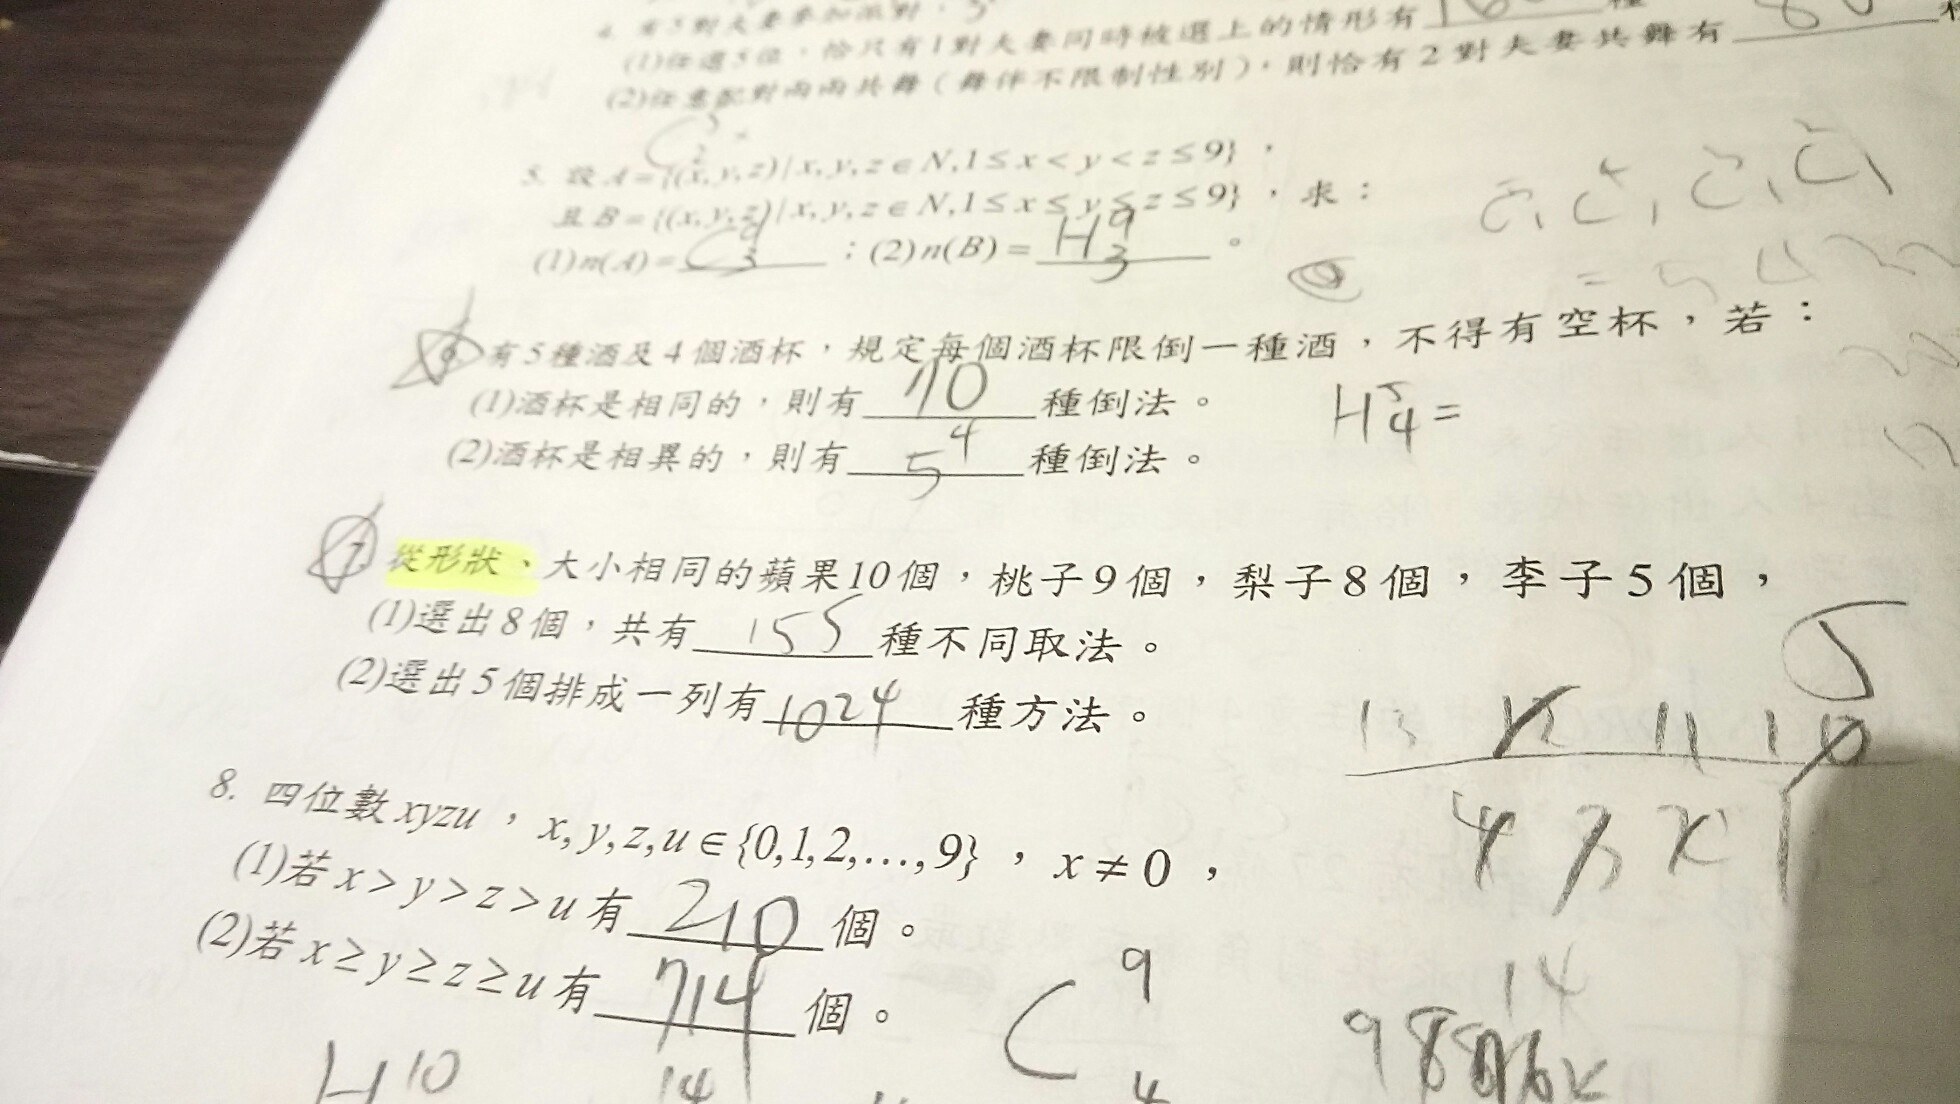 4. 有5對夫妻參加派對，
(1)任選5位，恰只有1對夫妻同時被選上的情形有 種
(2)任意配對兩兩共舞（舞伴不限制性別），則恰有2對夫妻共舞有 80
5. 設A={(x,y,z)|x,y,z∈N,1≤x<y<z≤9}，
且B={(x,y,z)|x,y,z∈N,1≤x≤y≤z≤9}，求：
(1)n(A)= C⁹₃ ；(2)n(B)= H⁹₃ 。
6. 有5種酒及4個酒杯，規定每個酒杯限倒一種酒，不得有空杯，若：
(1)酒杯是相同的，則有 70 種倒法。 H⁵₄=
(2)酒杯是相異的，則有 5⁴ 種倒法。
7. 從形狀、大小相同的蘋果10個，桃子9個，梨子8個，李子5個，
(1)選出8個，共有 155 種不同取法。
(2)選出5個排成一列有 1024 種方法。
5
13 12 11 10
4 3 2 1
8. 四位數xyzu，x,y,z,u∈{0,1,2,…,9}，x≠0，
(1)若x>y>z>u有 210 個。
(2)若x≥y≥z≥u有 714 個。
C⁹₄
14
H¹⁰
14